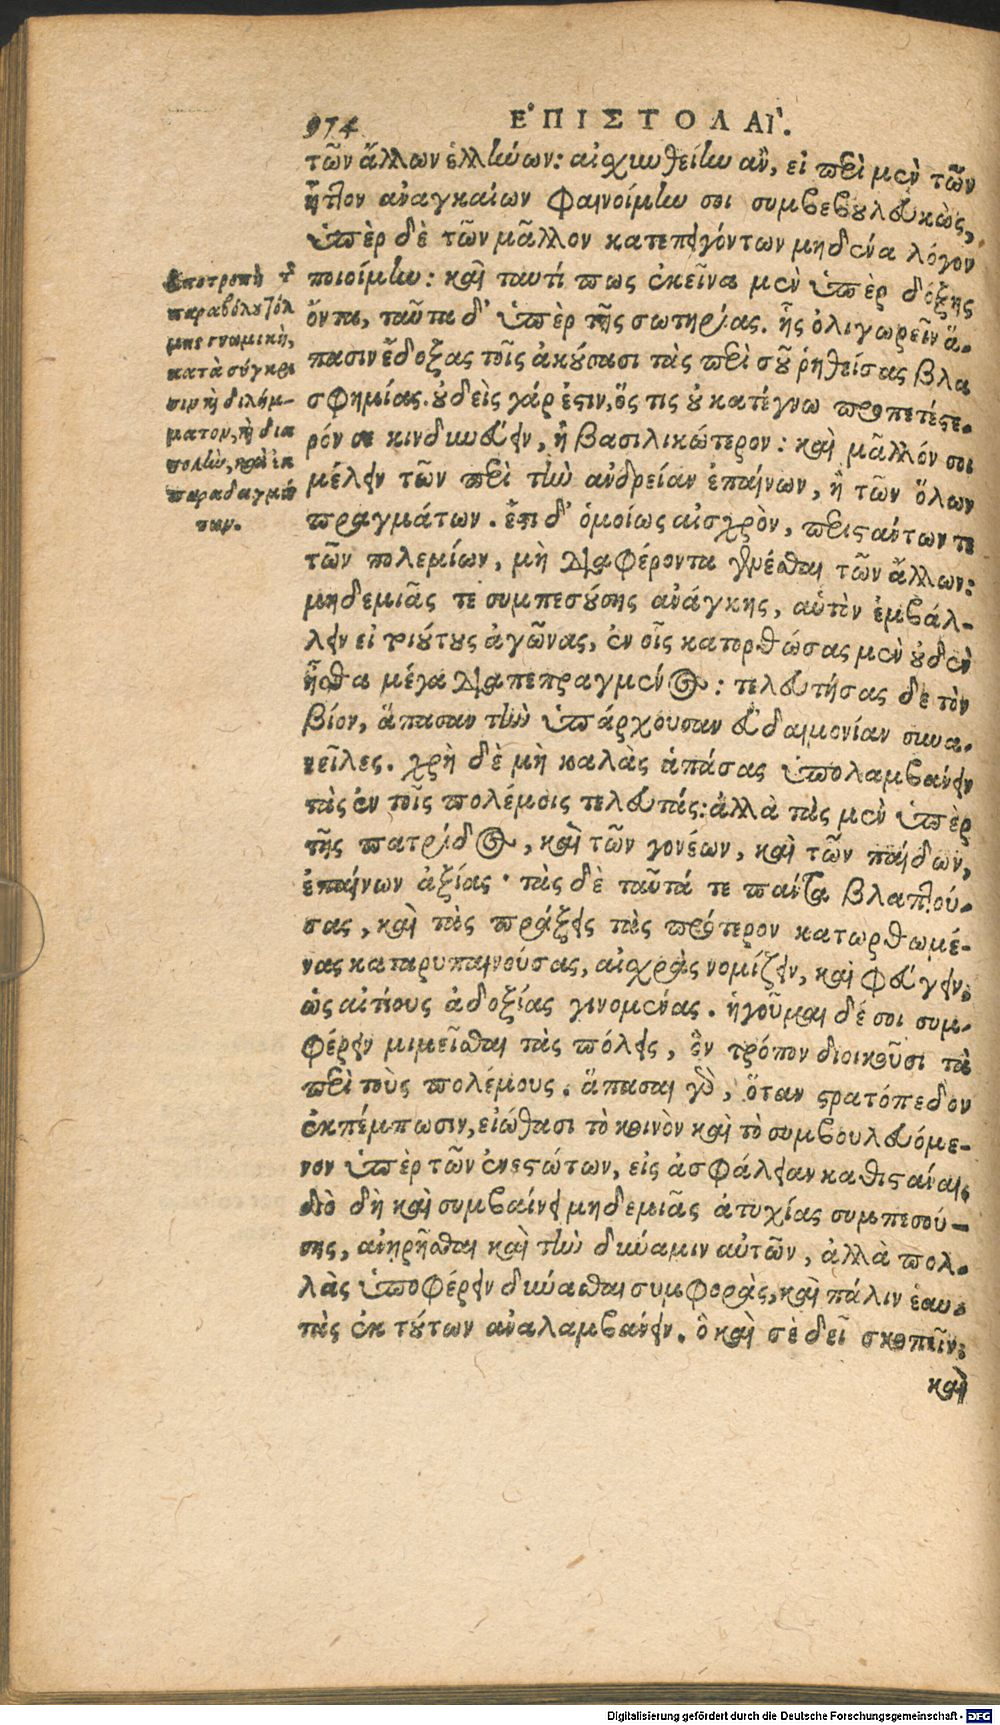 974 ἘΠΙΣΤΟΛΑΊ.
τῶν ἄλλων ἑλλήνων: αἰσχυνθείην ἂν, εἰ περὶ μὲν τῶν
ἧττον ἀναγκαίων φαινοίμην σοι συμβεβουλευκὼς,
ὑπὲρ δὲ τῶν μᾶλλον κατεπειγόντων μηδένα λόγον
ποιοίμην: καὶ ταυτί πως ἐκεῖνα μὲν ὑπὲρ δόξης
ὄντα, ταῦτα δ' ὑπὲρ τῆς σωτηρίας. ἧς ὀλιγωρεῖν ἅ-
πασιν ἔδοξας τοῖς ἀκούσασι τὰς περὶ σοῦ ῥηθείσας βλα
σφημίας. οὐδεὶς γάρ ἐστιν, ὅς τις οὐ κατέγνω προπετέστε-
ρόν σε κινδυνεύειν, ἢ βασιλικώτερον: καὶ μᾶλλόν σοι
μέλειν τῶν περὶ τὴν ἀνδρείαν ἐπαίνων, ἢ τῶν ὅλων
πραγμάτων. ἔστι δ' ὁμοίως αἰσχρὸν, περιστάντων τε
τῶν πολεμίων, μὴ διαφέροντα γενέσθαι τῶν ἄλλων:
μηδεμιᾶς τε συμπεσούσης ἀνάγκης, αὑτὸν ἐμβάλ-
λειν εἰς τοιούτους ἀγῶνας, ἐν οἷς κατορθώσας μὲν οὐδὲν
ἦσθα μέγα διαπεπραγμένος: τελευτήσας δὲ τὸν
βίον, ἅπασαν τὴν ὑπάρχουσαν εὐδαιμονίαν συνα-
νεῖλες. χρὴ δὲ μὴ καλὰς ἁπάσας ὑπολαμβάνειν
τὰς ἐν τοῖς πολέμοις τελευτάς: ἀλλὰ τὰς μὲν ὑπὲρ
τῆς πατρίδος, καὶ τῶν γονέων, καὶ τῶν παίδων,
ἐπαίνων ἀξίας· τὰς δὲ ταῦτά τε πάντα βλαπτού-
σας, καὶ τὰς πράξεις τὰς πρότερον κατωρθωμέ-
νας καταρυπαινούσας, αἰσχρὰς νομίζειν, καὶ φεύγειν,
ὡς αἰτίους ἀδοξίας γινομένας. ἡγοῦμαι δέ σοι συμ-
φέρειν μιμεῖσθαι τὰς πόλεις, ὃν τρόπον διοικοῦσι τὰ
περὶ τοὺς πολέμους. ἅπασαι γὰρ, ὅταν στρατόπεδον
ἐκπέμπωσιν, εἰώθασι τὸ κοινὸν καὶ τὸ συμβουλευόμε-
νον ὑπὲρ τῶν ἐνεστώτων, εἰς ἀσφάλειαν καθιστάναι,
διὸ δὴ καὶ συμβαίνει μηδεμιᾶς ἀτυχίας συμπεσού-
σης, ἀνῃρῆσθαι καὶ τὴν δύναμιν αὐτῶν, ἀλλὰ πολ-
λὰς ὑποφέρειν δύνασθαι συμφορὰς, καὶ πάλιν ἑαυ-
τὰς ἐκ τούτων ἀναλαμβάνειν. ὃ καὶ σὲ δεῖ σκοπεῖν,
καὶ
Ἀποτροπὴ τοῦ
παραβόλου
γνωμικὴ,
κατὰ σύγκρι
σιν ἢ διλήμ-
ματον, ἢ δια
καὶ ἐκ
παραδειγμά
των.
Digitalisierung gefördert durch die Deutsche Forschungsgemeinschaft - DFG